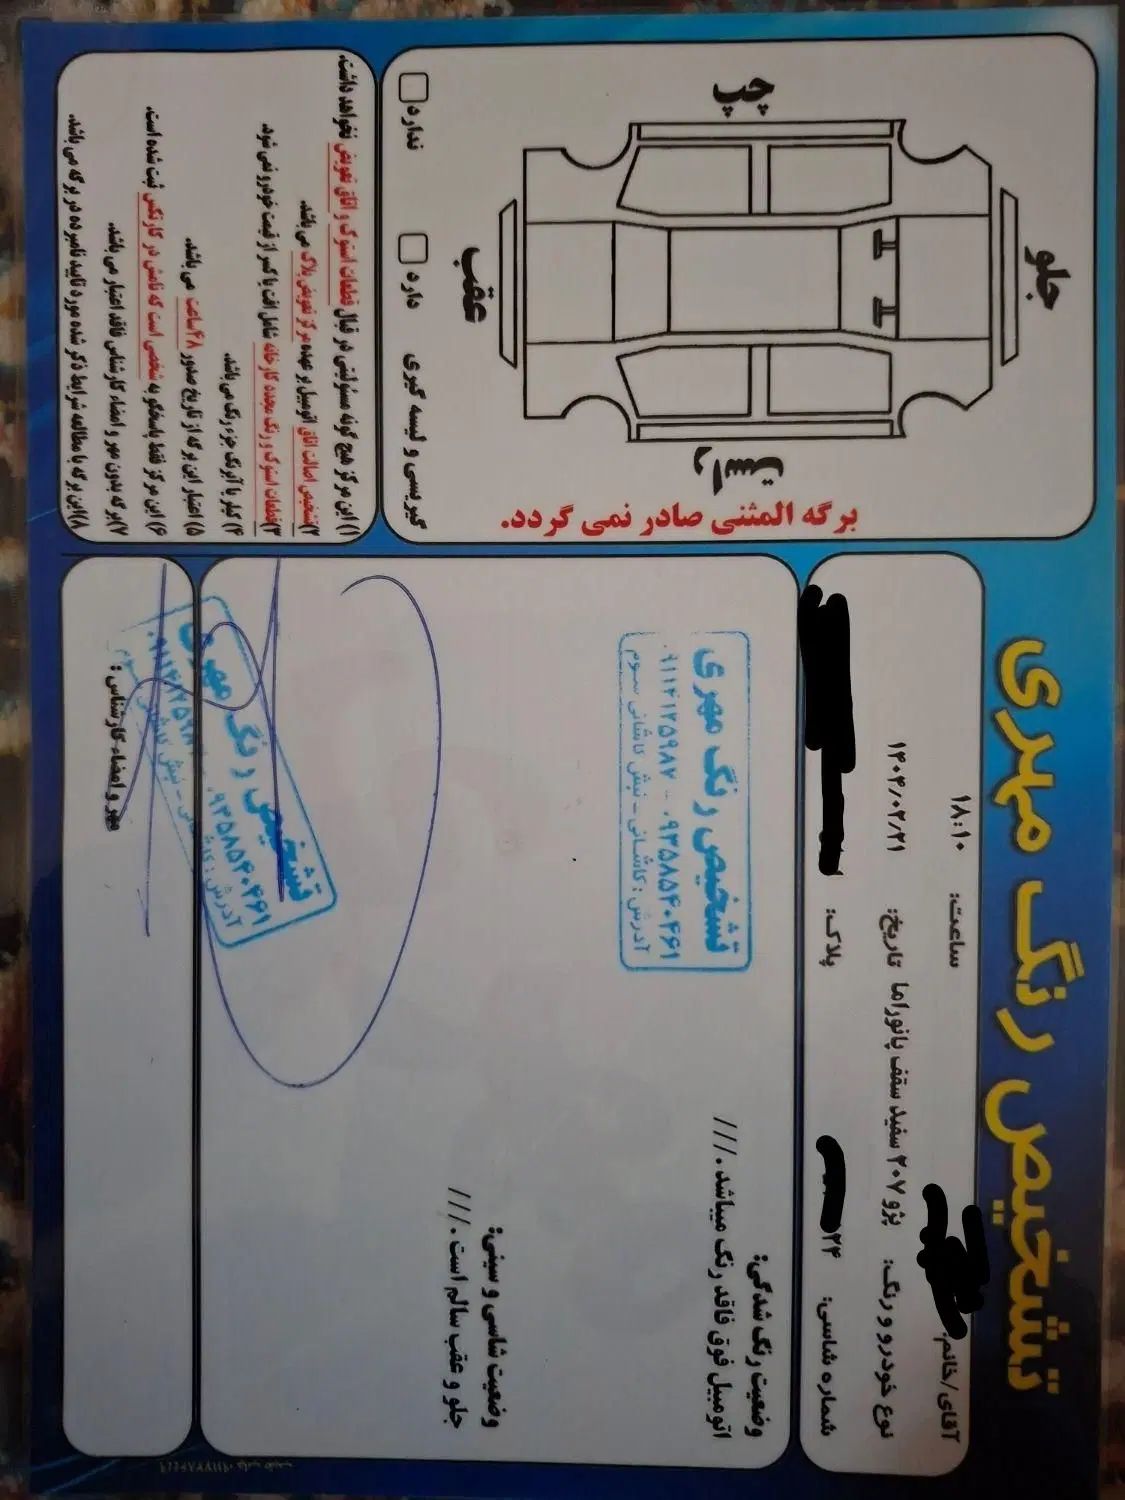 تشخیص رنگ مهری
آقای/خانم:
ساعت: ۱۸:۱۰
نوع خودرو و رنگ: پژو ۲۰۷ سفید سقف پانوراما
تاریخ: ۱۴۰۴/۰۲/۲۱
شماره شاسی: ۲۴
پلاک:
وضعیت رنگ شدگی:
اتومبیل فوق فاقد رنگ میباشد.///
وضعیت شاسی و سینی:
جلو و عقب سالم است.///
تشخیص رنگ مهری
۰۹۱۱۴۱۲۵۹۸۷ - ۰۹۳۵۸۵۴۰۴۶۱
آدرس: کاشانی - نبش کاشانی سوم
تشخیص رنگ مهری
۰۹۳۵۸۵۴۰۴۶۱
مهر و امضاء کارشناس:
جلو
چپ
راست
عقب
برگه المثنی صادر نمی گردد.
گیریسی و لیسه گیری دارد ندارد
۱) این مرکز هیچ گونه مسئولیتی در قبال قطعات استوک و اتاق تعویض نخواهد داشت.
۲) تشخیص اصالت اتاق اتومبیل بر عهده مرکز تعویض پلاک می باشد.
۳) قطعات استوک و رنگ مجدد کارخانه شامل افت یا کسر از قیمت خودرو نمی شود.
۴) کیلر یا آبرنگ جزء رنگ می باشد.
۵) اعتبار این برگه از تاریخ صدور ۴۸ساعت می باشد.
۶) این مرکز فقط پاسخگو به شخصی است که نامش در کارتکس ثبت شده است.
۷) برگه بدون مهر و امضاء کارشناس فاقد اعتبار می باشد.
۸) این برگه با مطالعه شرایط ذکر شده مورد تایید نامبرده در برگه می باشد.